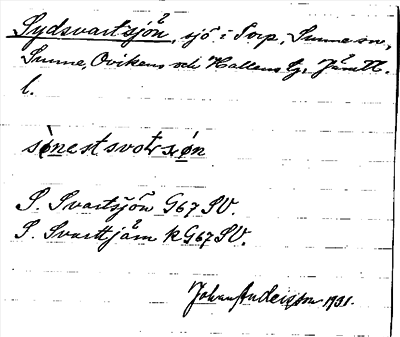 Sydsvartsjön, sjö i Torp, Sunne sn,
Sunne Ovikens och Hallens tg. Jämtl.
l.
sønestsvotsxøn
S. Svartsjön G67 SV.
S. Svarttjärn k G67 SV.
Johan Andersson 1931.